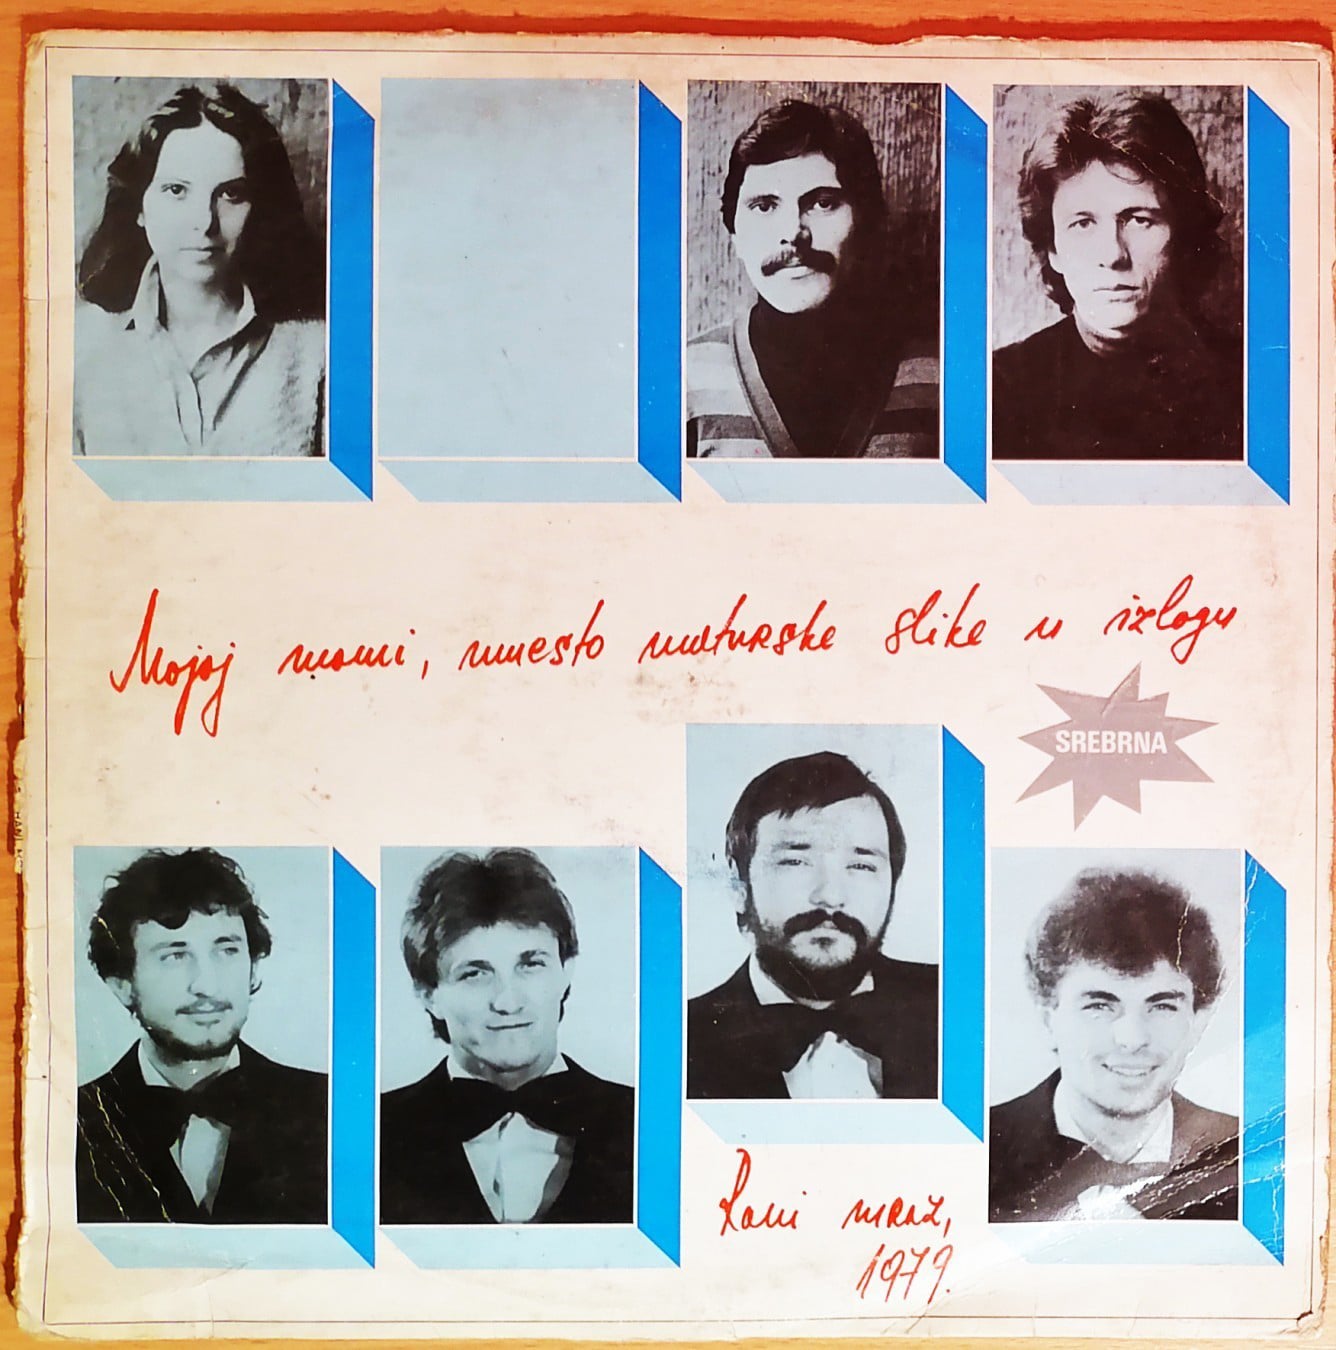 Mojoj mami, umesto maturske slike u izlogu
SREBRNA
Rani mraz,
1979.